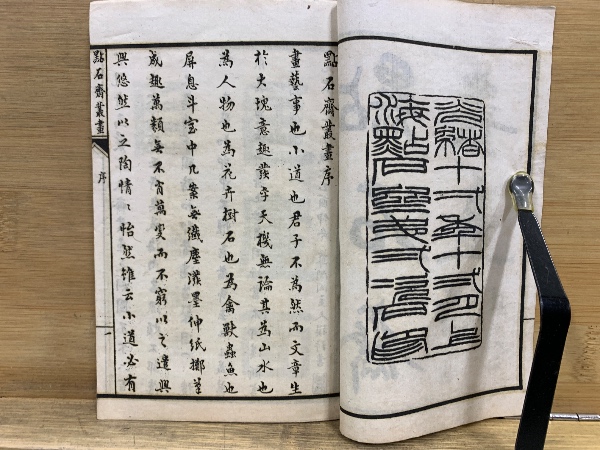 光緒十弍年十弍月上
海點石齋
點石齋叢畫序
畫藝事也小道也君子不為然而文章生
於大塊意趣發乎天機無論其為山水也
為人物也為花卉樹石也為禽獸蟲魚也
屏息斗室中几案無纖塵潑墨伸紙擲筆
成趣萬類無不肖萬變而不窮以之遣興
興悠然以之陶情〻怡然雖云小道必有
點石齋叢畫 序 一